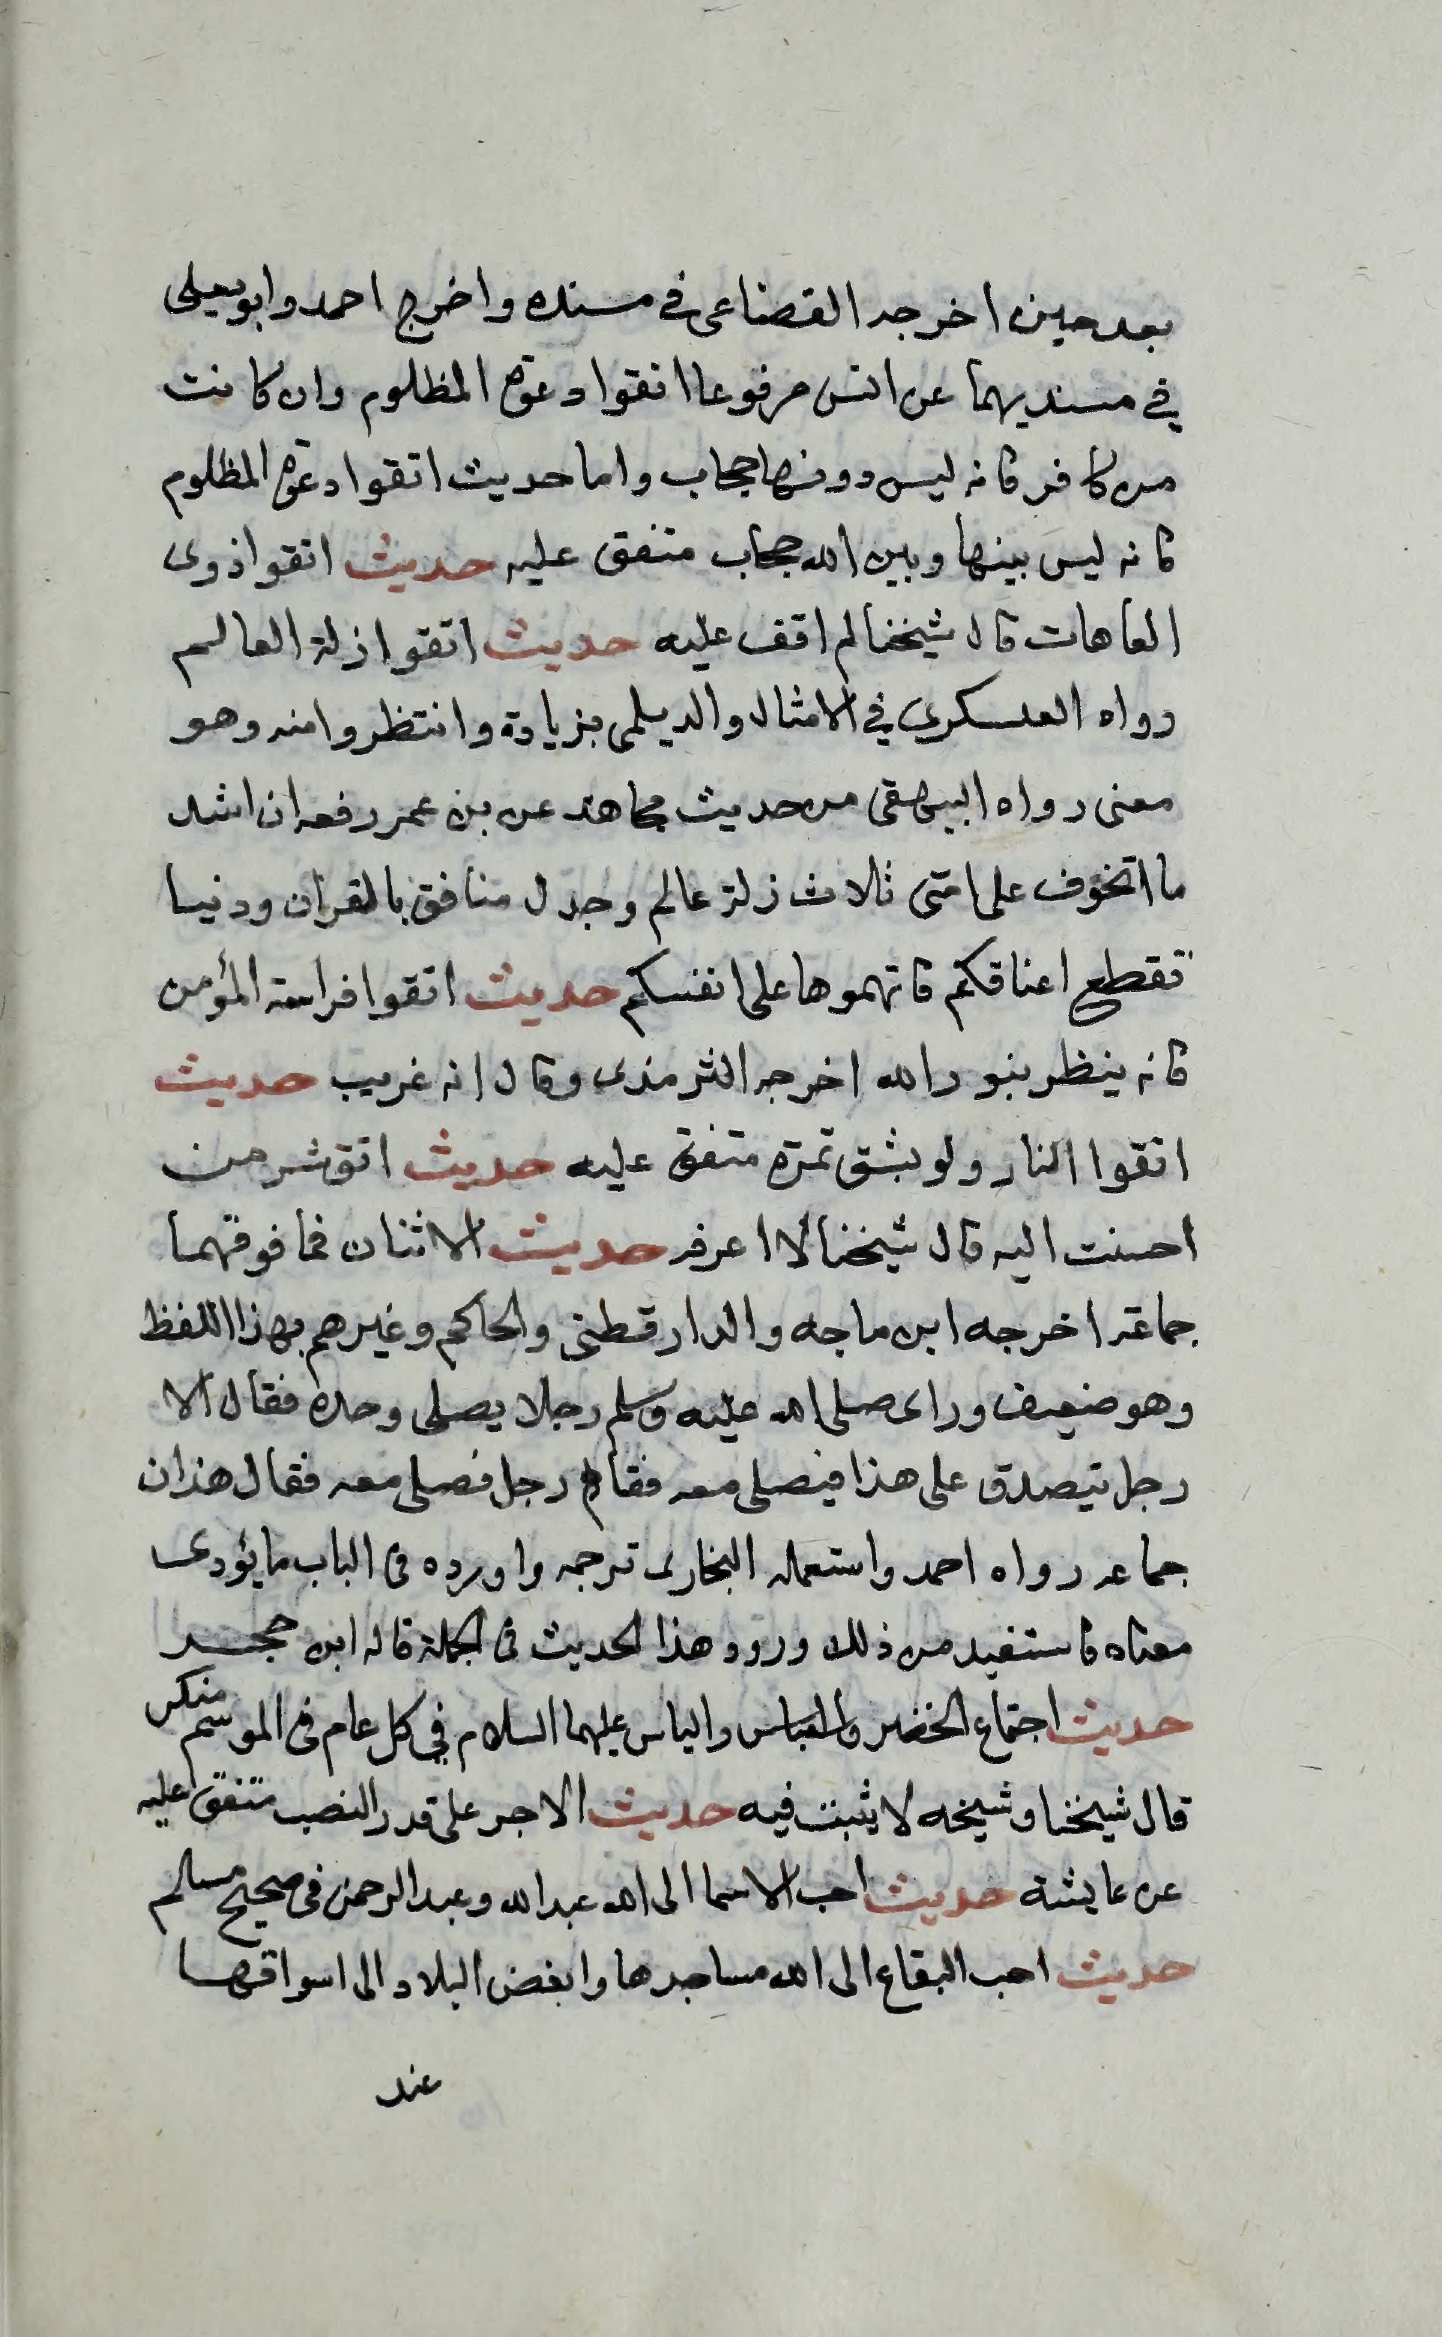 بعد حين اخرجه القضاعى فے مسنده واخرج احمد وابو يعلى
فے مسنديهما عن انس مرفوعا اتقوا دعوة المظلوم وان كانت
من كافر فانه ليس دونها حجاب واما حديث اتقوا دعوة المظلوم
فانه ليس بينها وبين الله حجاب متفق عليه حديث اتقوا ذوى
العاهات قال شيخنا لم اقف عليه حديث اتقوا زلة العالم
رواه العسكرى فے الامثال والديلمى بزيادة وانتظروا منه وهو
معنى رواه البيهقى من حديث مجاهد عن بن عمر رفعه ان اشد
ما اتخوف على امتى ثلاث زلة عالم وجدل منافق بالقران ودنيا
تقطع اعناقكم فاتهموها على انفسكم حديث اتقوا فراسة المؤمن
فانه ينظر بنور الله اخرجه الترمذى وقال انه غريب حديث
اتقوا النار ولو بشق تمرة متفق عليه حديث اتق شر من
احسنت اليه قال شيخنا لا اعرفه حديث الاثنان فما فوقهما
جماعة اخرجه ابن ماجه والدارقطنى والحاكم وغيرهم بهذا اللفظ
وهو ضعيف وراى صلى الله عليه وسلم رجلا يصلى وحده فقال الا
رجل يتصدق على هذا فيصلى معه فقام رجل فصلى معه فقال هذان
جماعه رواه احمد واستعمله البخارى ترجمه واورده فى الباب ما يؤدى
معناه فاستفيد من ذلك ورود هذا الحديث فى الجملة قاله ابن حجر
حديث اجتماع الخضر والياس عليهما السلام فى كل عام فى الموسم منكر
قال شيخنا وشيخه لا يثبت فيه حديث الاجر على قدر النصب متفق عليه
عن عايشة حديث احب الاسما الى الله عبد الله وعبد الرحمن فى صحيح مسلم
حديث احب البقاع الى الله مساجدها وابغض البلاد الى اسواقها
عند